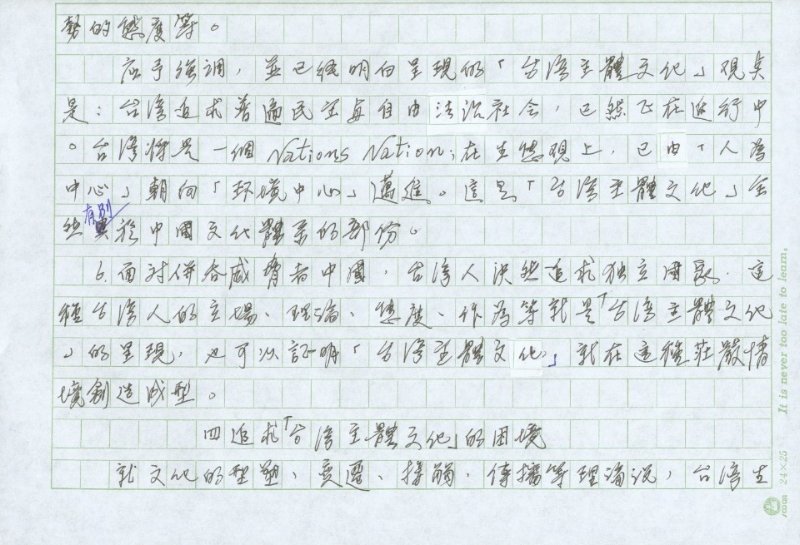 勢的態度等。
應予強調，並已經明白呈現的「台灣主體文化」現象
是：台灣追求普遍民主與自由法治社會，已然飞在進行中
。台灣將是一個Nations Nation；在生態觀上，已由「人為
中心」朝向「环境中心」邁進。這是「台灣主體文化」全
然有別於中國文化體系的部份。
6.面對併吞威脅者中國，台灣人決然追求独立國家，這
種台灣人的立場、理論、態度、作為等就是「台灣主體文化
」的呈現，也可以証明「台灣主體文化」就在這種莊嚴情
境創造成型。
四追求「台灣主體文化」的困境
就文化的型塑、变遷、接觸、傳播等理論說，台灣主
It is never too late to learn.
24×25